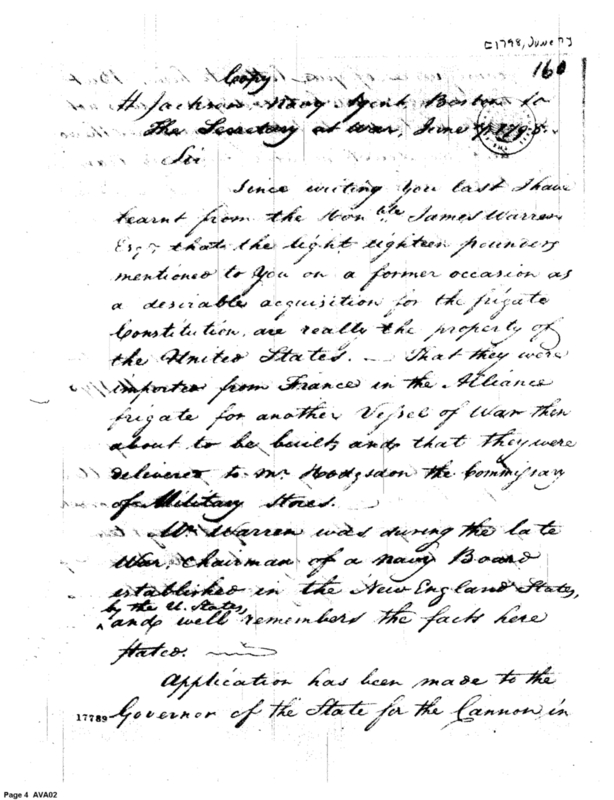 [1798, June 7]
160
Copy
H Jackson Navy Agent Boston to
The Secretary at War, June 7 1798.
Sir
Since writing You last I have
learnt from the Hon ble James Warren
Esqr that the light eighteen pounders
mentioned to You on a former occasion as
a desirable acquisition for the frigate
Constitution, are really the property of
the United States. — That they were
imported from France in the Alliance
frigate for another Vessel of War then
about to be built, and that they were
delivered to Mr Hodgsdon the Commissary
of Military Stores.
Mr Warren was during the late
War, Chairman of a Navy Board
established in the New England States,
by the U. States,
^ and well remembers the facts here
stated.
Application has been made to the
17789
Governor of the State for the Cannon in
Page 4 AVA02